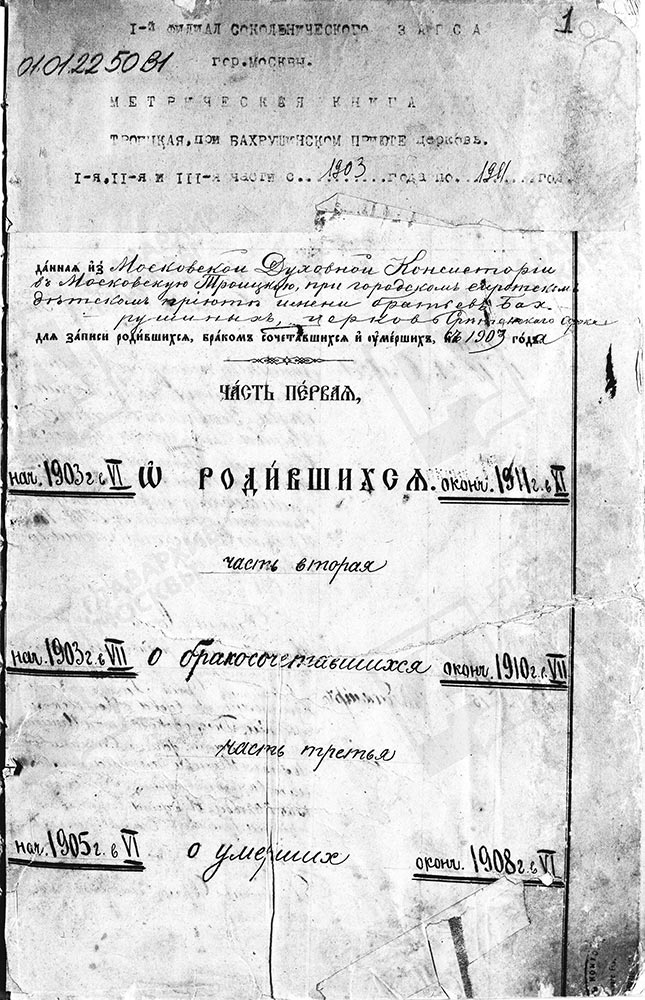 1
I-й ФИЛИАЛ СОКОЛЬНИЧЕСКОГО ЗАГСА
01.01.22 50 В1
гор. МОСКВЫ.
МЕТРИЧЕСКАЯ КНИГА
ТРОИЦКАЯ, при БАХРУШИНСКОМ ПРИЮТЕ церковь.
I-я, II-я и III-я части с... 1903 ...года по.. 1911 ...год.
да́нная из̾ Московской Духовной Консисторіи
въ Московскую Троицкую, при городскомъ сиротскомъ
дѣтскомъ пріютѣ имени братьевъ Бах
рушиныхъ, церковь Срѣтенскаго Сорока
для за́писи роди́вшихся, бра́комъ сочета́вшихся и҆ ᲂу҆ме́ршихъ, съ 1903 го́да
ЧА́СТЬ ПЕ́РВАЯ,
нач. 1903 г. с VI Ѡ҆ РОДИ́ВШИХСЯ. оконч. 1911 г. в XI
часть вторая
нач. 1903 г. с VII о бракосочетавшихся оконч. 1910 г. с VII
часть третья
нач. 1905 г. в VI о умерших оконч. 1908 г. в VI